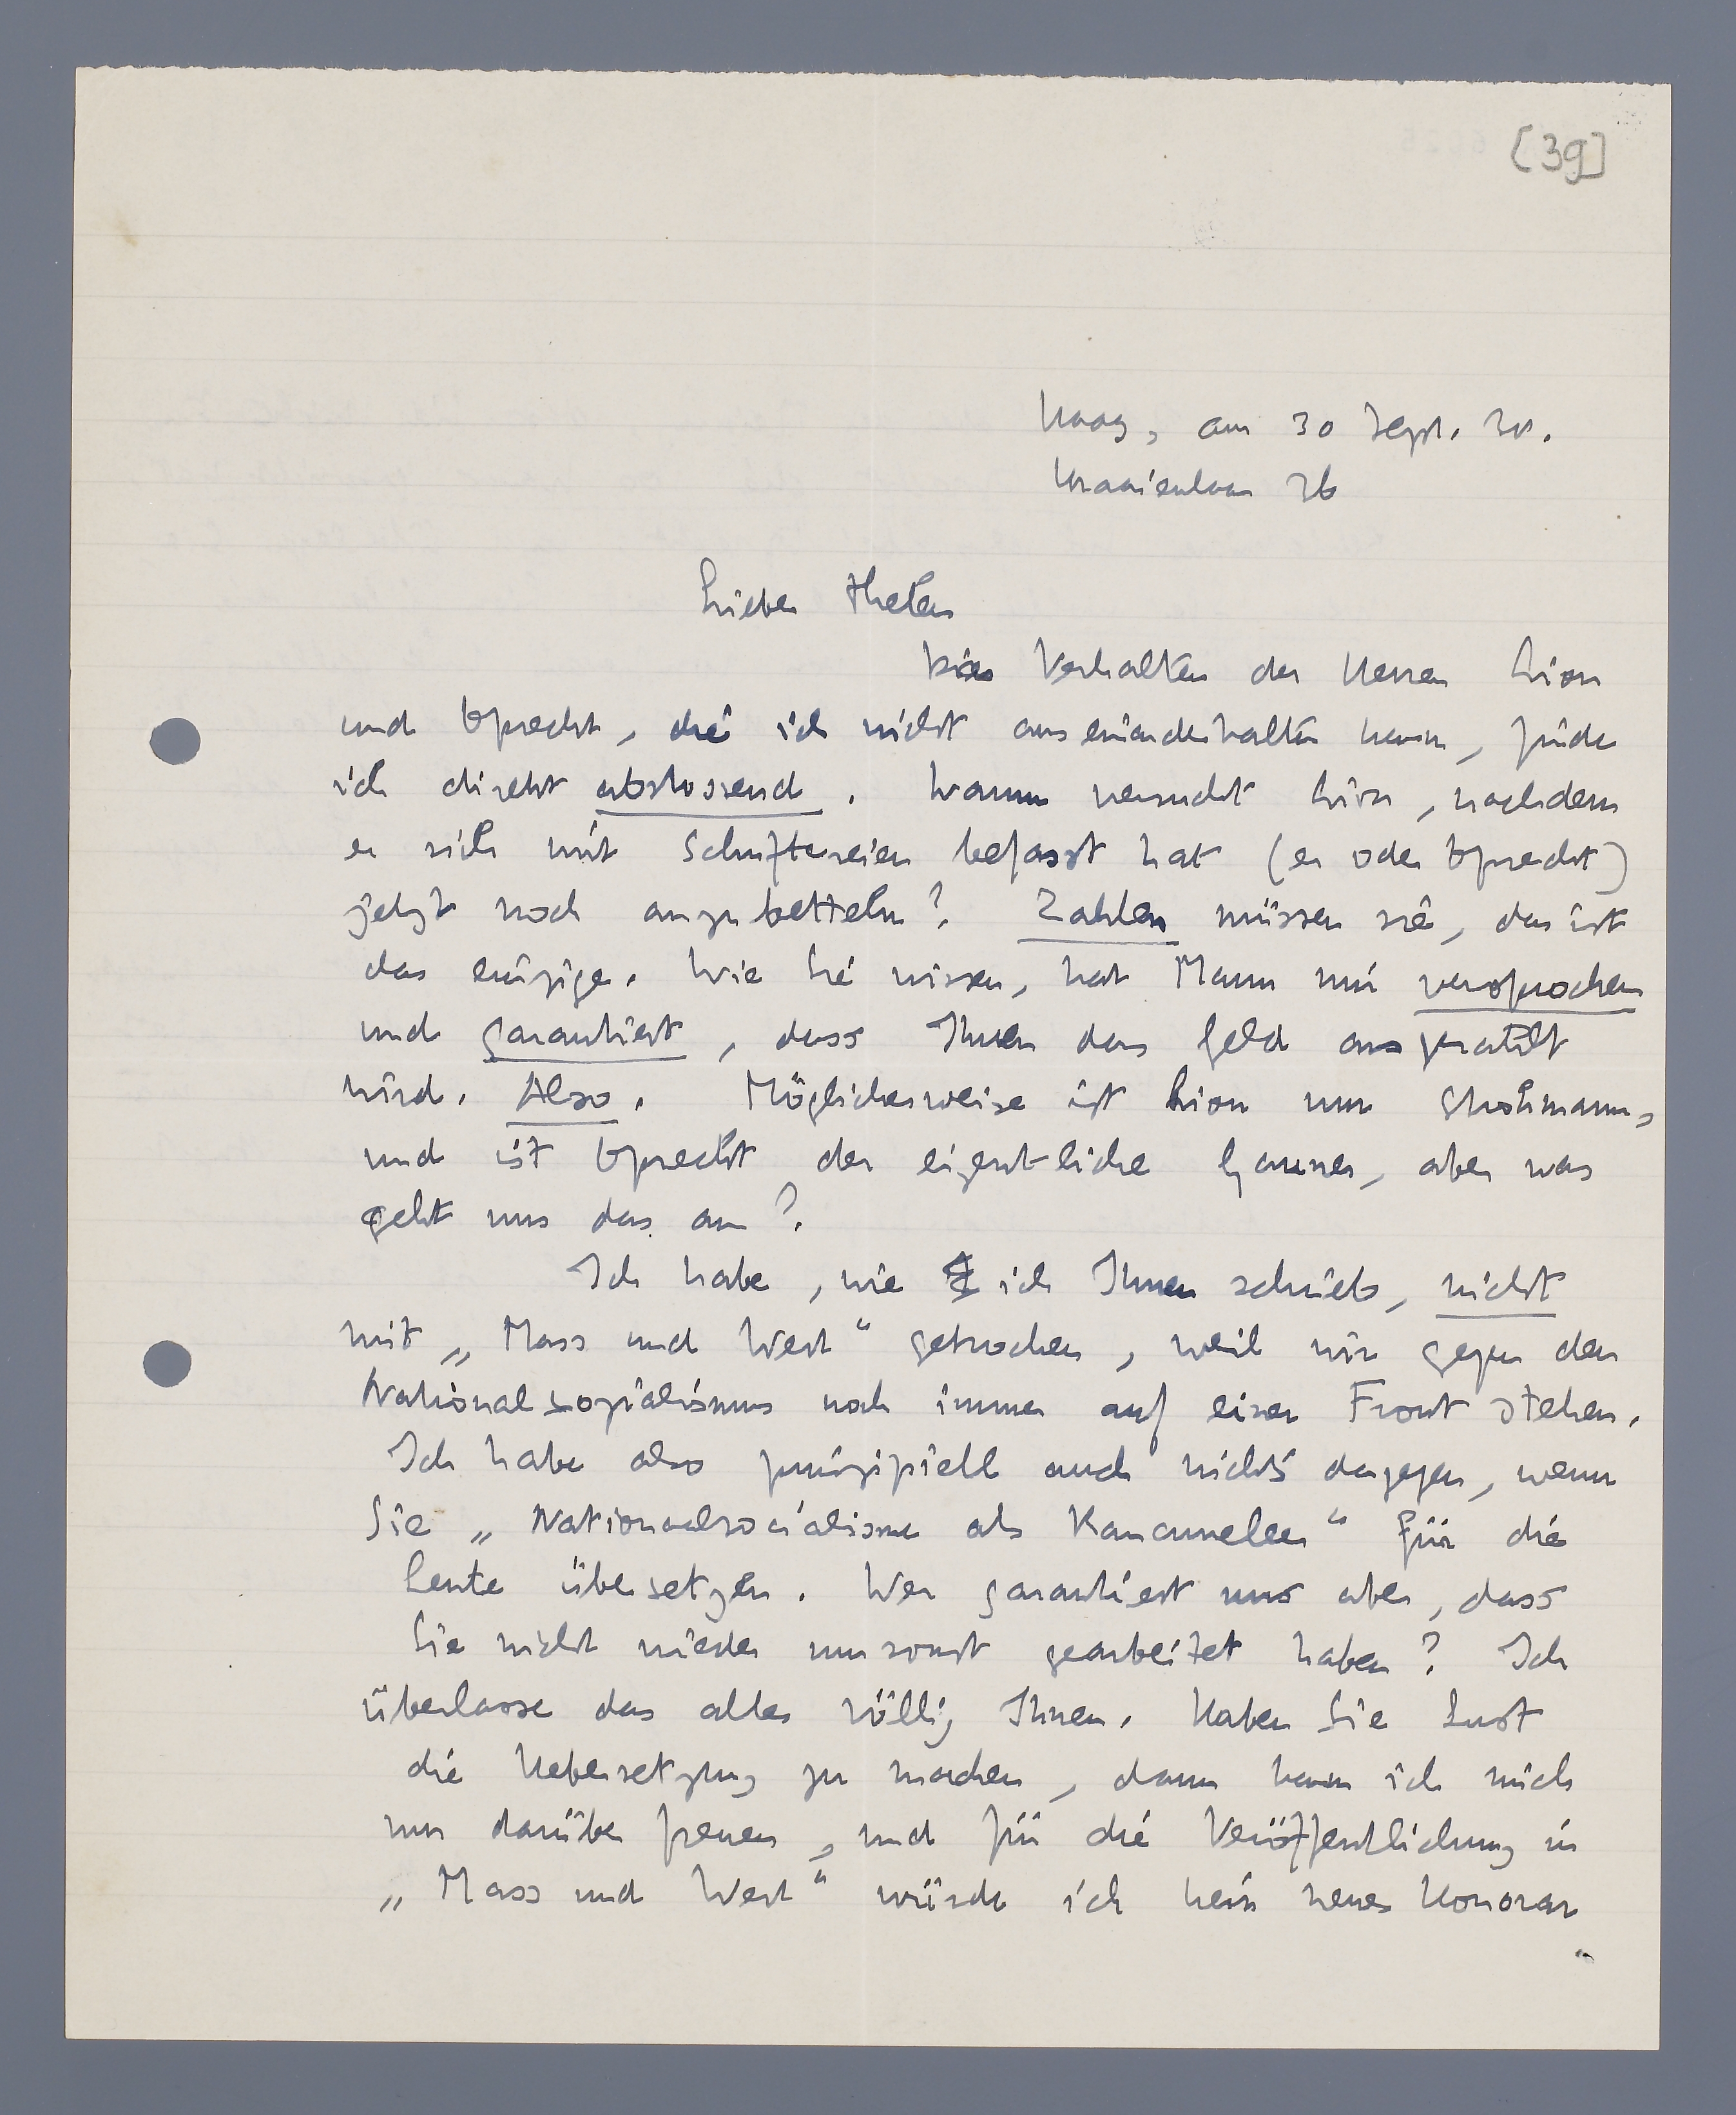 [39]
Haag, am 30 Sept. 38.
Kraaienlaan 36
Lieber Thelen
Das Verhalten der Herren Lion
und Oprecht, die ich nicht auseinanderhalten kann, finde
ich direkt abstossend. Warum versucht Lion, nachdem
er sich mit Schuftereien befasst hat (er oder Oprecht)
jetzt noch anzubetteln? Zahlen müssen sie, das ist
das einzige. Wie Sie wissen, hat Mann mir versprochen
und garantiert, dass Ihnen das Geld ausgezahlt
wird. Also. Möglicherweise ist Lion nur Strohmann,
und ist Oprecht der eigentliche Gauner, aber was
geht uns das an?
Ich habe, wie ich Ihnen schrieb, nicht
mit „Mass und Wert“ gebrochen, weil wir gegen den
Nationalsozialismus noch immer auf einer Front stehen.
Ich habe also prinzipiell auch nichts dagegen, wenn
Sie „Nationaalsocialisme als Rancuneleer“ für die
Leute übersetzen. Wer garantiert uns aber, dass
Sie nicht wieder umsonst gearbeitet haben? Ich
überlasse das alles völlig Ihnen. Haben Sie Lust
die Uebersetzung zu machen, dann kann ich mich
nur darüber freuen, und für die Veröffentlichung in
„Mass und Wert“ würde ich kein neues Honorar